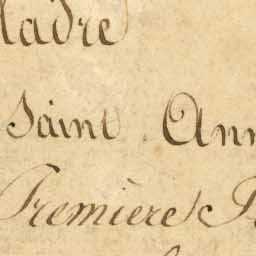 ladre
Saint Ann
Premiere P